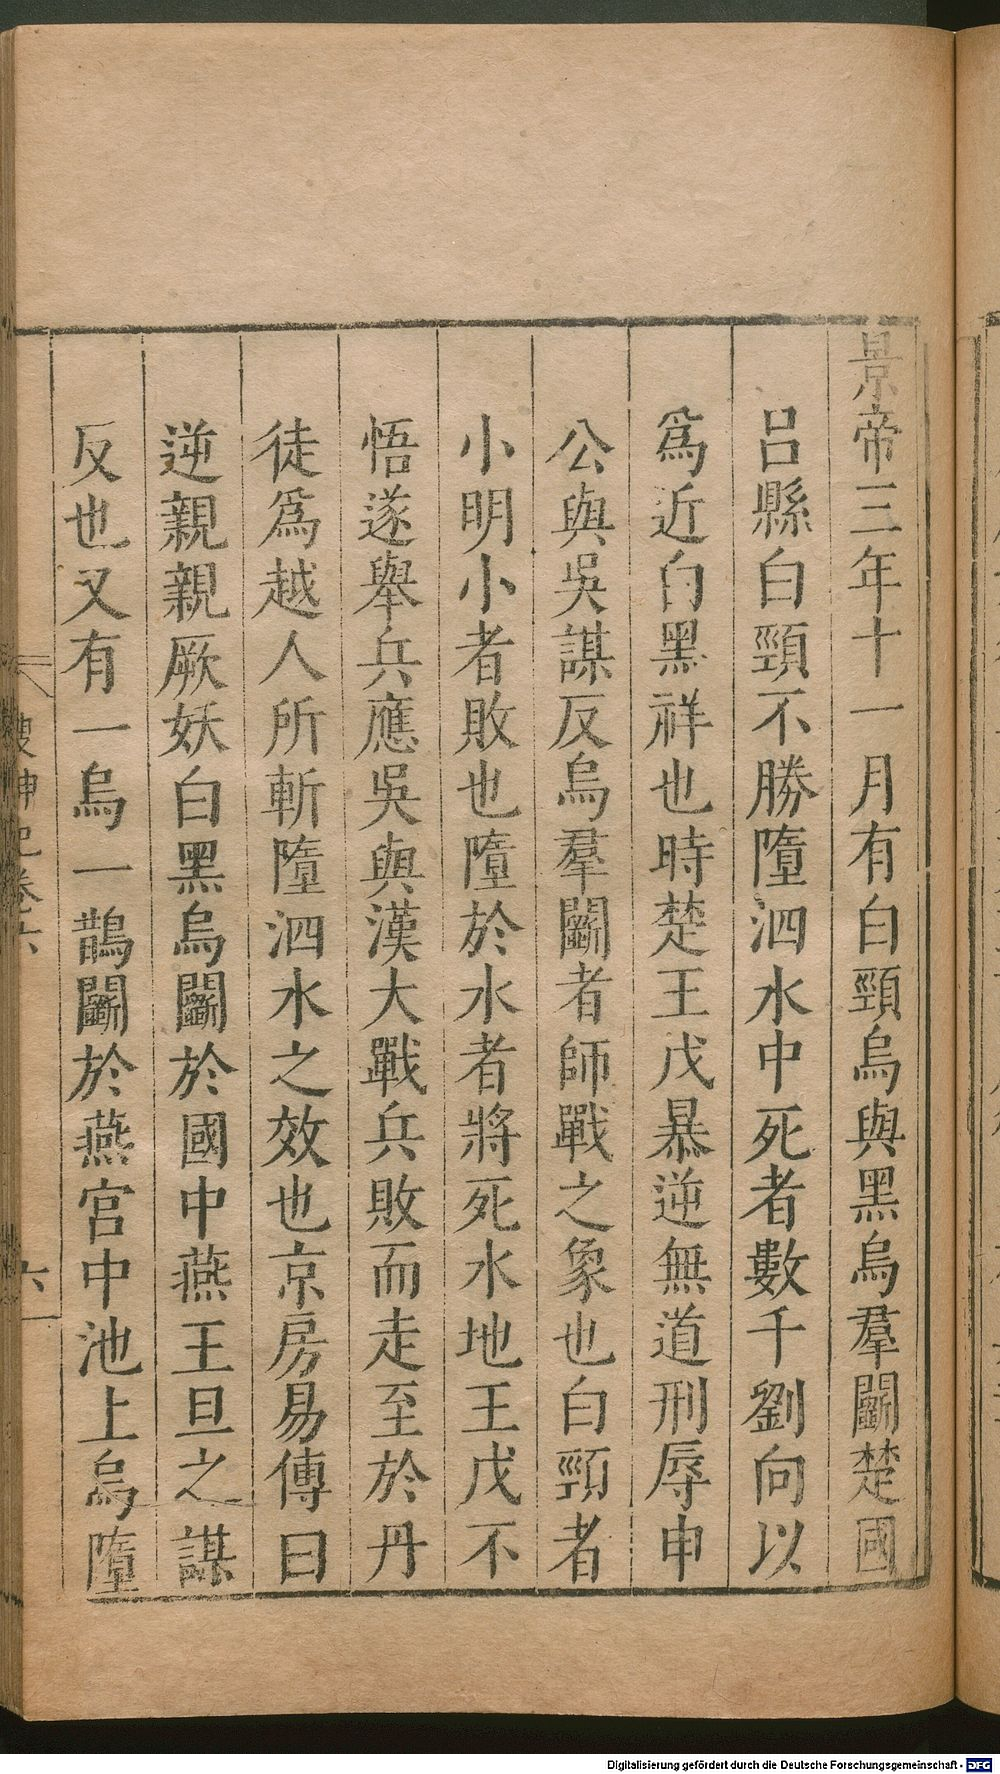 景帝三年十一月有白頸烏與黑烏羣鬭楚國
呂縣白頸不勝墮泗水中死者數千劉向以
爲近白黑祥也時楚王戊暴逆無道刑辱申
公與吳謀反烏羣鬭者師戰之象也白頸者
小明小者敗也墮於水者將死水地王戊不
悟遂舉兵應吳與漢大戰兵敗而走至於丹
徒爲越人所斬墮泗水之效也京房易傳曰
逆親親厥妖白黑烏鬭於國中燕王旦之謀
反也又有一烏一鵲鬭於燕宮中池上烏墮
搜神記卷六 六
Digitalisierung gefördert durch die Deutsche Forschungsgemeinschaft - DFG